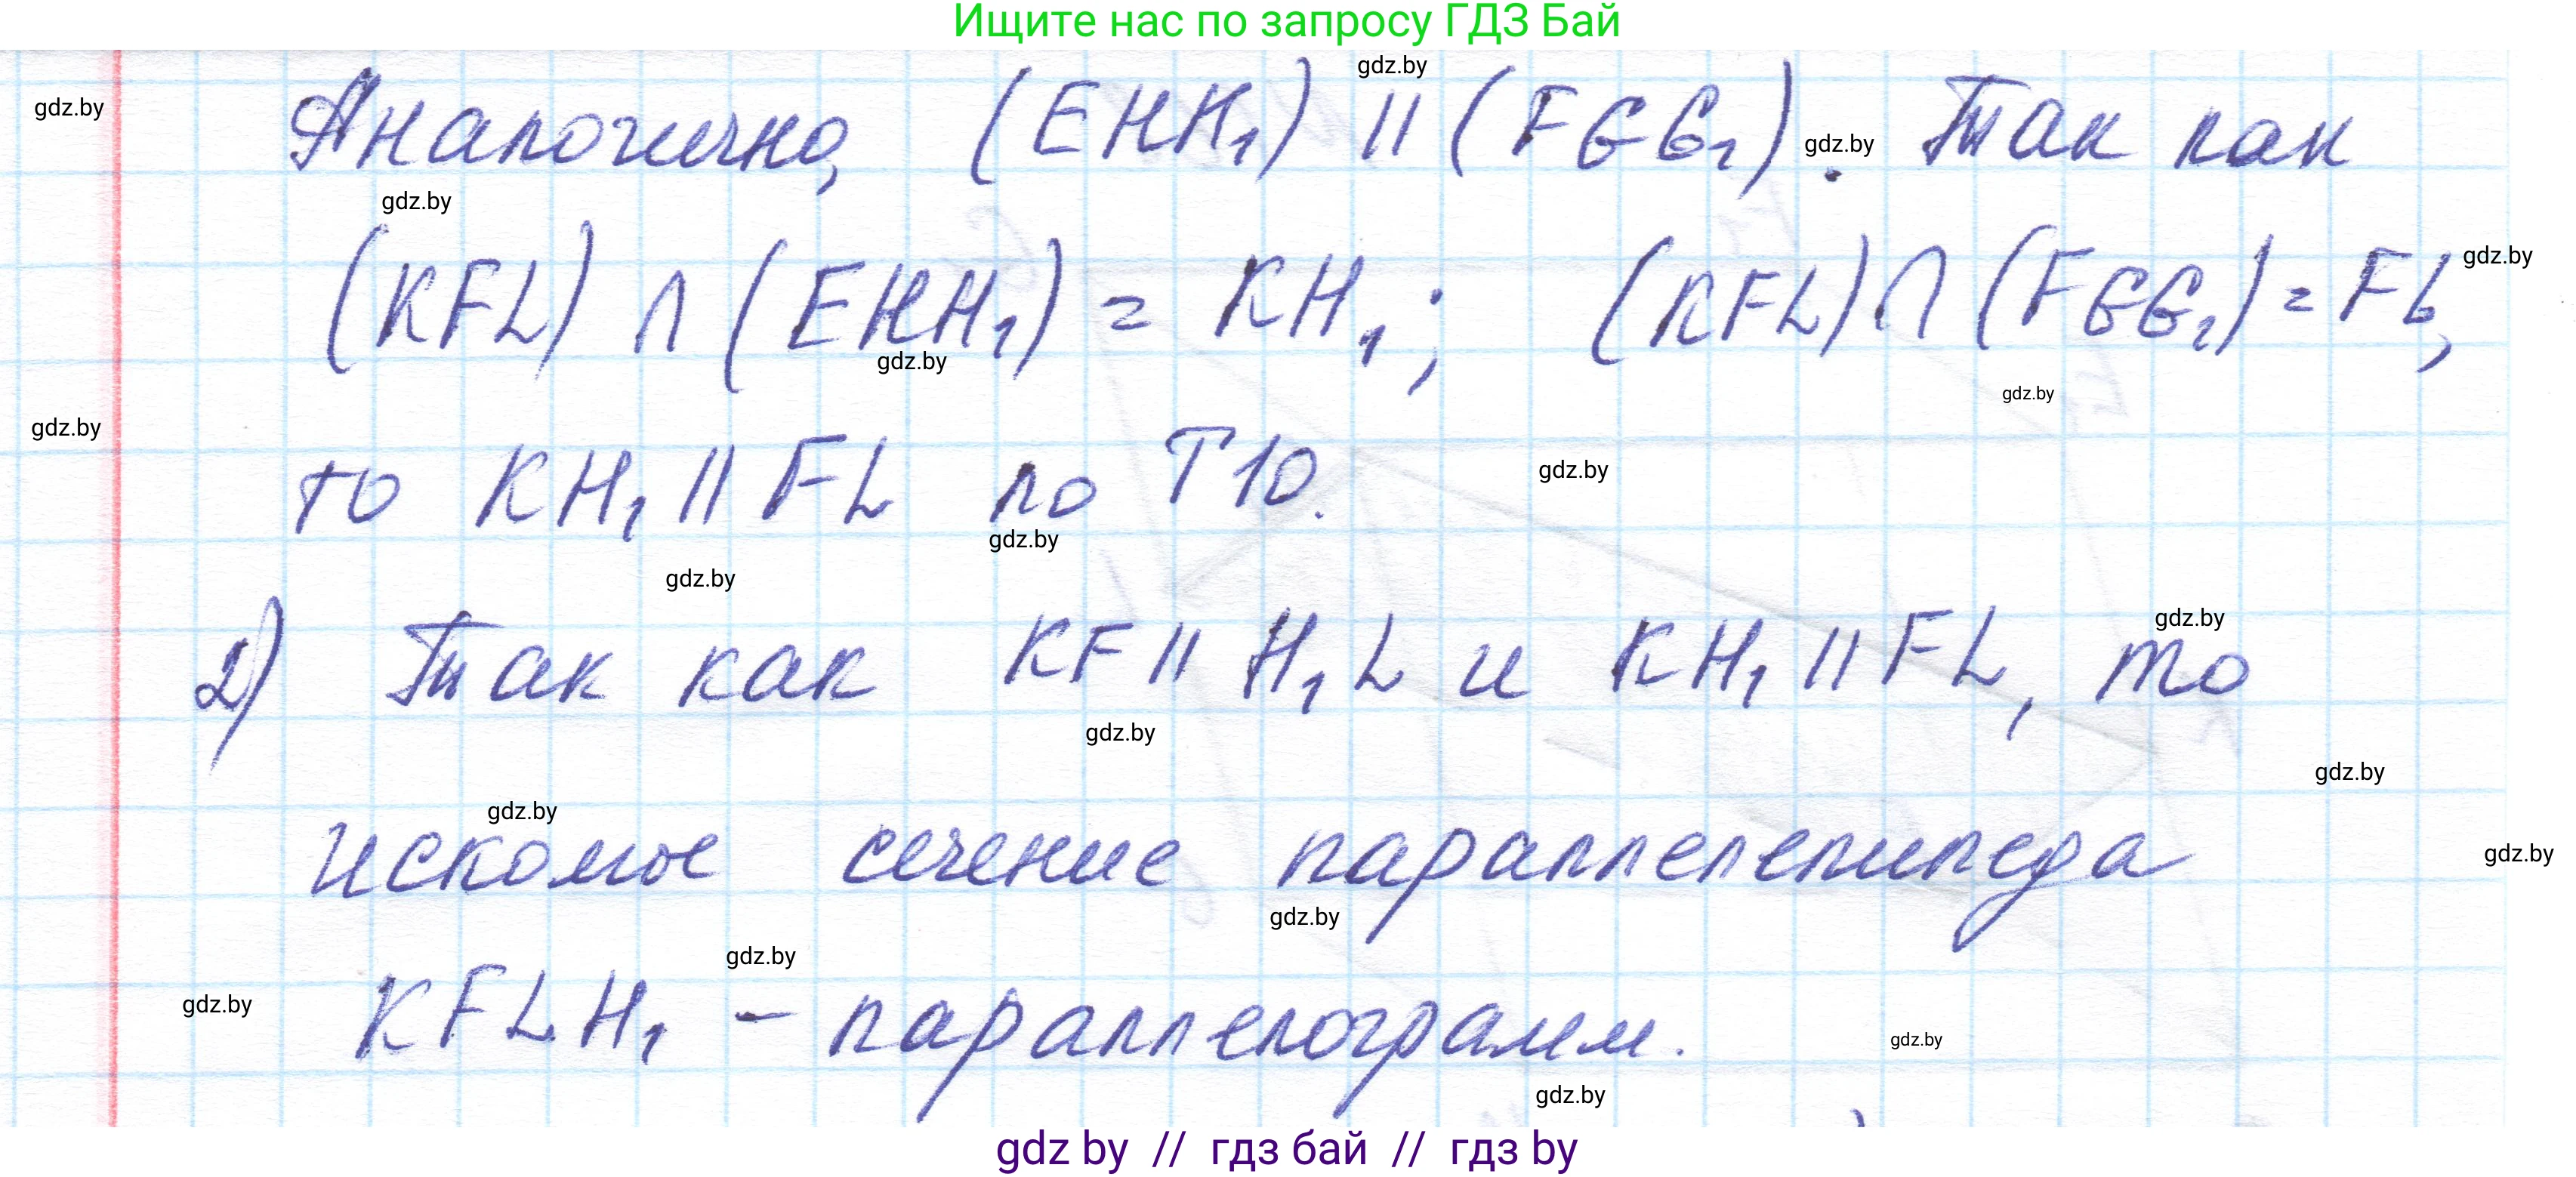 Ищите нас по запросу ГДЗ Бай
gdz.by
gdz.by
Аналогично, (EHK₁) || (FGG₁). Так как
gdz.by
gdz.by
(KFL) ∩ (EHH₁) = KH₁; (KFL) ∩ (FGG₁) = FL,
gdz.by
gdz.by
gdz.by
gdz.by
то KH₁ || FL по Т10.
gdz.by
gdz.by
gdz.by
2) Так как KF || H₁L и KH₁ || FL, то
gdz.by
gdz.by
gdz.by
gdz.by
искомое сечение параллелепипеда
gdz.by
gdz.by
gdz.by
KFLH₁ – параллелограмм.
gdz.by
gdz.by
gdz.by
gdz by // гдз бай // гдз by